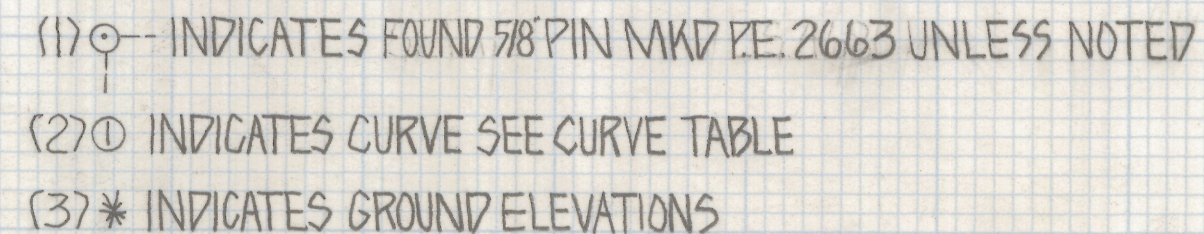 (1) ⊙-- INDICATES FOUND 5/8" PIN MKD P.E. 2663 UNLESS NOTED
(2) ① INDICATES CURVE SEE CURVE TABLE
(3) * INDICATES GROUND ELEVATIONS